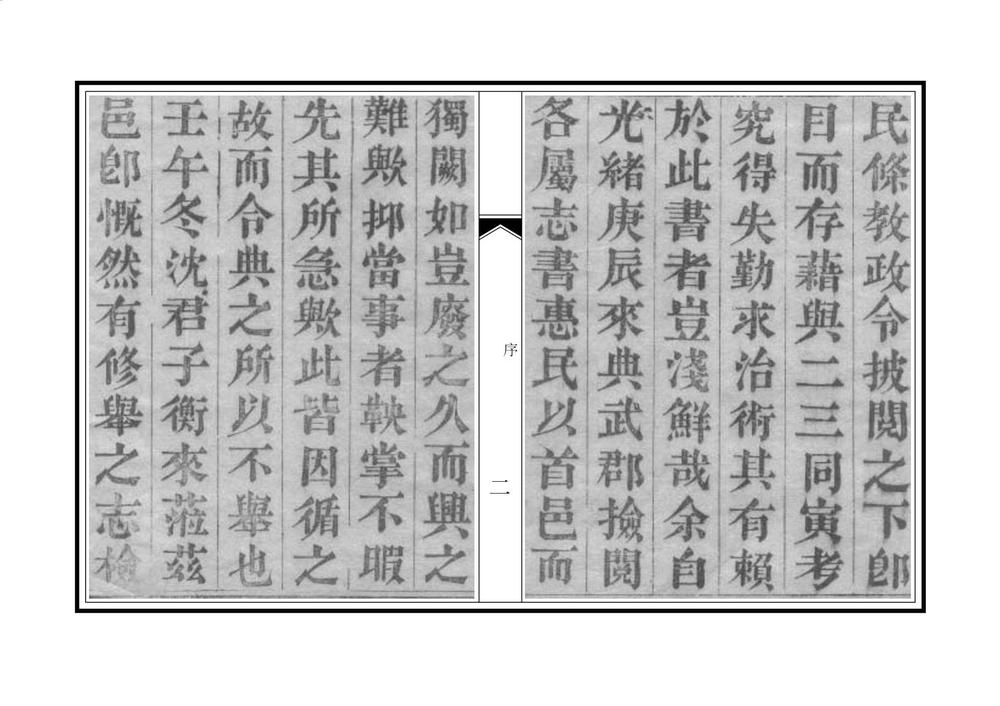 民條教政令披閱之下卽
目而存藉與二三同寅考
究得失勤求治術其有賴
於此書者豈淺鮮哉余自
光緒庚辰來典武郡撿閱
各屬志書惠民以首邑而
序
二
獨闕如豈廢之久而興之
難歟抑當事者鞅掌不暇
先其所急歟此皆因循之
故而令典之所以不舉也
壬午冬沈君子衡來蒞茲
邑卽慨然有修舉之志檢